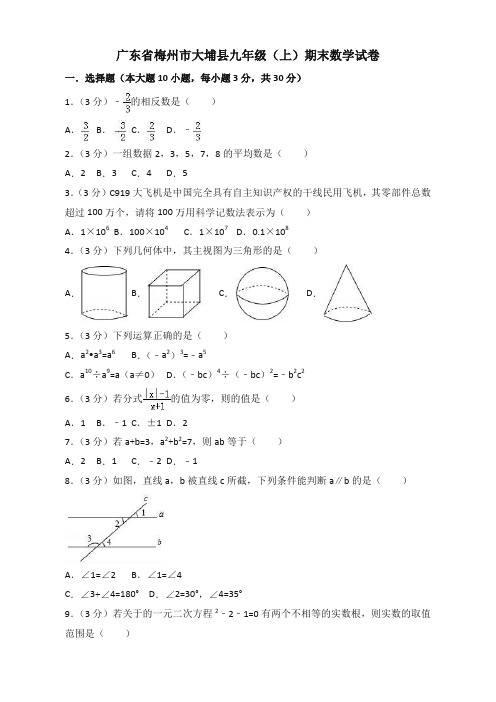 广东省梅州市大埔县九年级（上）期末数学试卷
一．选择题（本大题 10 小题，每小题 3 分，共 30 分）
1．（3 分）﹣2/3的相反数是（ ）
A．3/2 B．﹣3/2 C．2/3 D．﹣2/3
2．（3 分）一组数据 2，3，5，7，8 的平均数是（ ）
A．2 B．3 C．4 D．5
3．（3 分）C919 大飞机是中国完全具有自主知识产权的干线民用飞机，其零部件总数
超过 100 万个，请将 100 万用科学记数法表示为（ ）
A．1×10⁶ B．100×10⁴ C．1×10⁷ D．0.1×10⁸
4．（3 分）下列几何体中，其主视图为三角形的是（ ）
A． B． C． D．
5．（3 分）下列运算正确的是（ ）
A．a²•a³=a⁶ B．（﹣a²）³=﹣a⁵
C．a¹⁰÷a⁹=a（a≠0） D．（﹣bc）⁴÷（﹣bc）²=﹣b²c²
6．（3 分）若分式(|x|-1)/(x+1)的值为零，则的值是（ ）
A．1 B．﹣1 C．±1 D．2
7．（3 分）若 a+b=3，a²+b²=7，则 ab 等于（ ）
A．2 B．1 C．﹣2 D．﹣1
8．（3 分）如图，直线 a，b 被直线 c 所截，下列条件能判断 a∥b 的是（ ）
c
2 1 a
3 4 b
A．∠1=∠2 B．∠1=∠4
C．∠3+∠4=180° D．∠2=30°，∠4=35°
9．（3 分）若关于的一元二次方程 ²﹣2﹣1=0 有两个不相等的实数根，则实数的取值
范围是（ ）